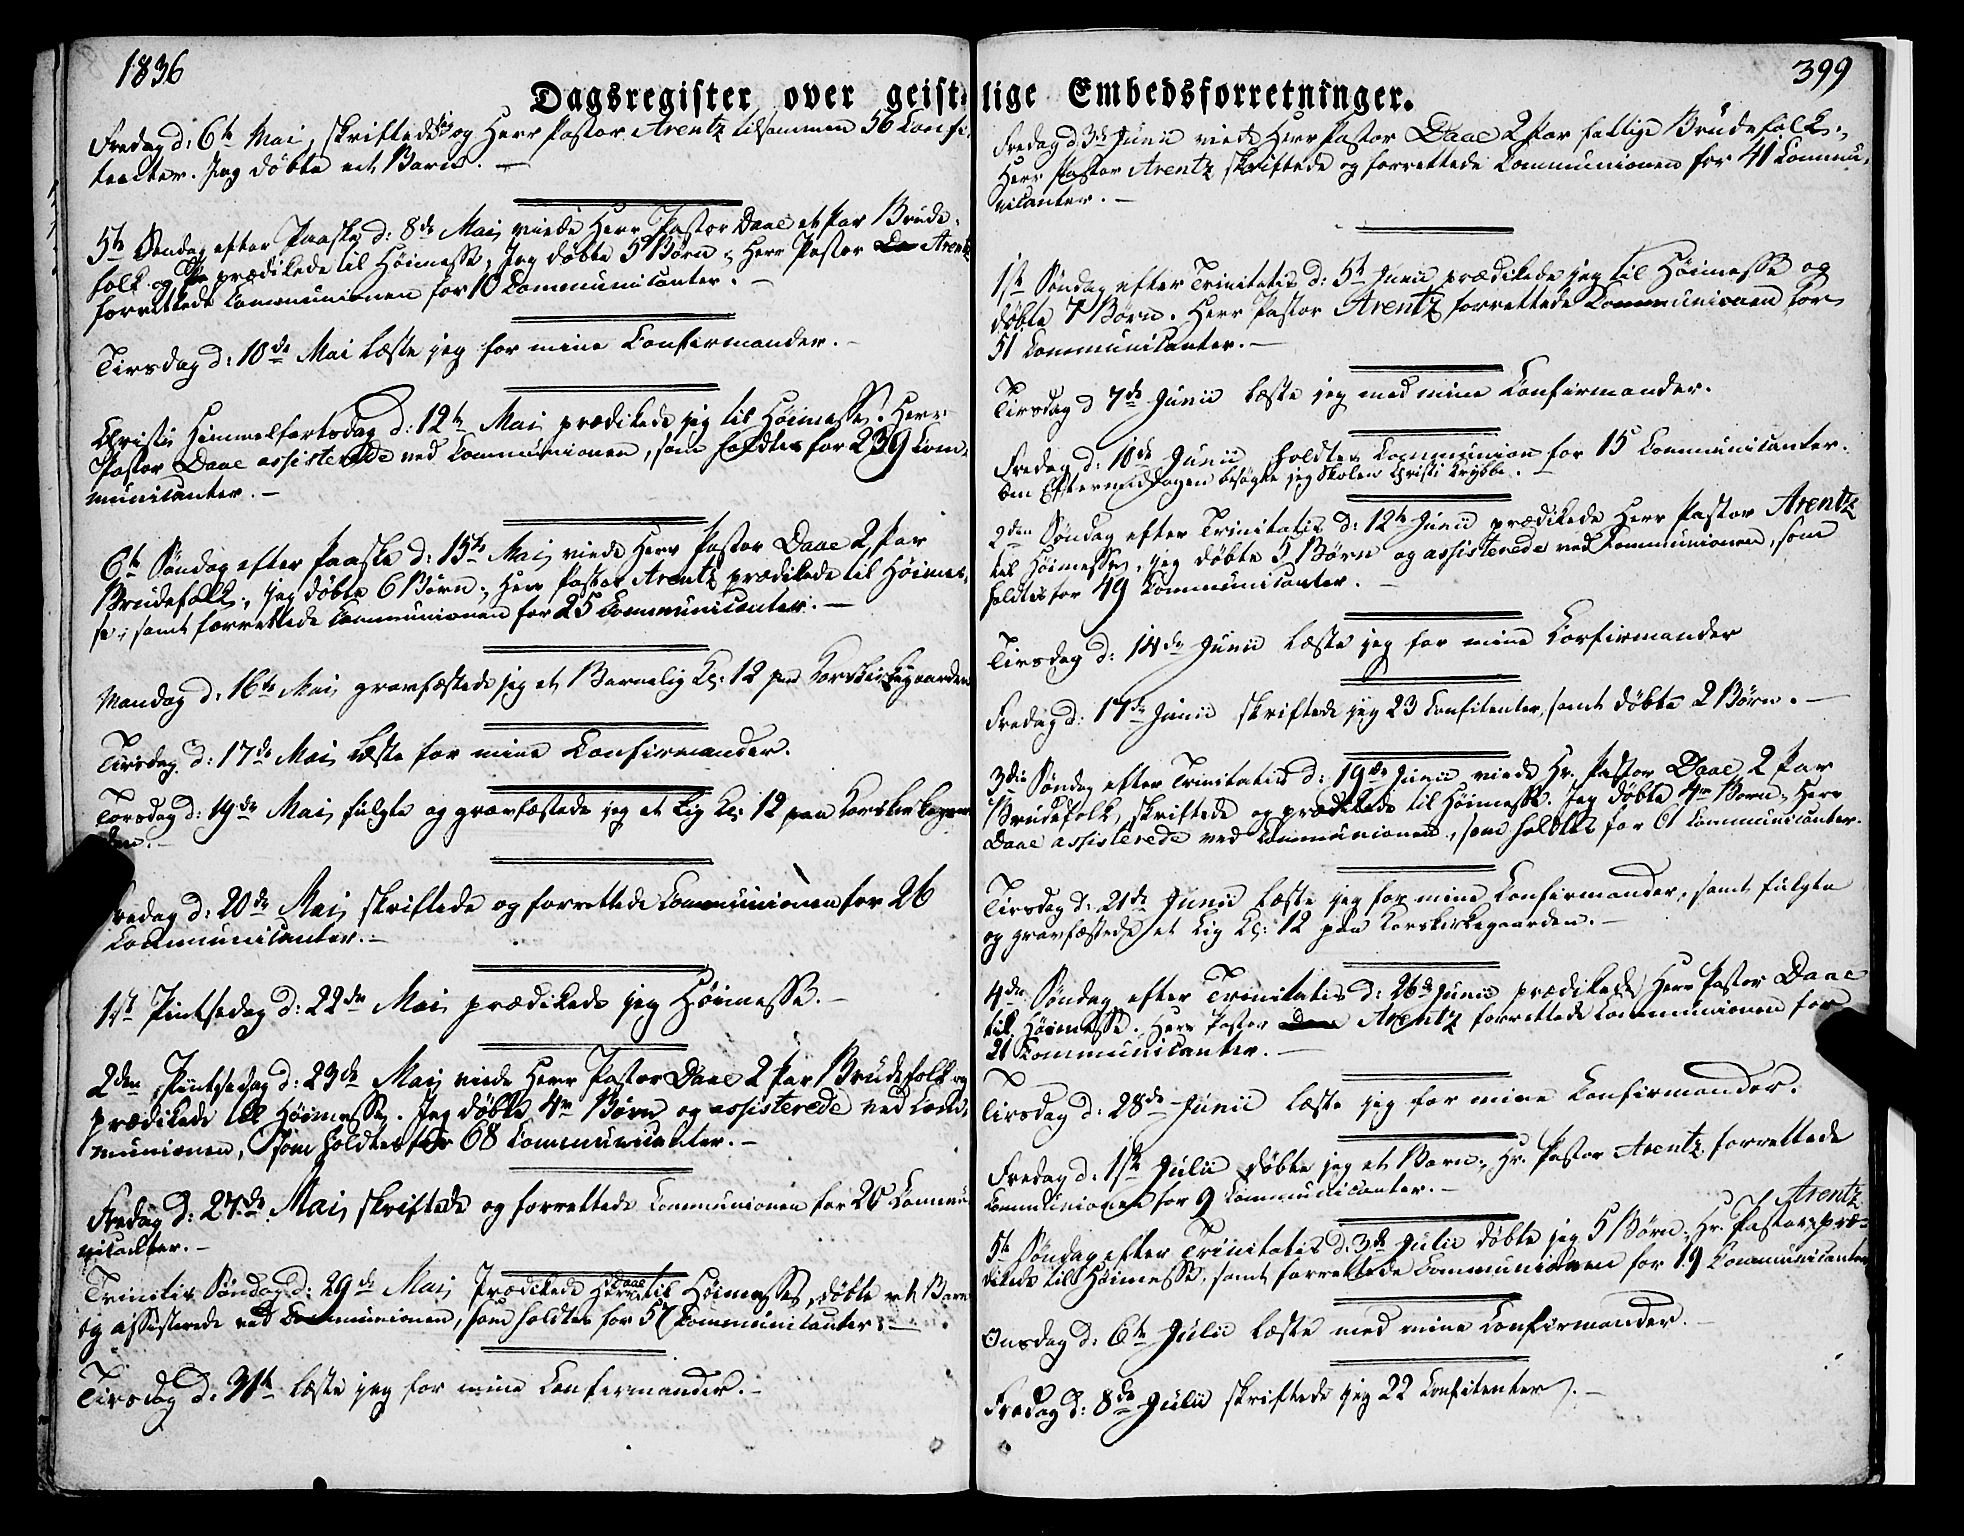 1836
399
Dagsregister over geist-lige Embedsforretninger.
Fredag d: 6te Mai, skriftede jeg og Herr Pastor Arentz tilsammen 56 Confi-
tenter. Jeg døbte eet Barn. —
5te Søndag efter Paaske d: 8de Mai viede Herr Pastor Daae et Par Brude-
folk og prædikede til Høimesse, Jeg døbte 5 Børn, Herr Pastor Arentz
forrettede Communionen for 10 Communicanter. —
Tirsdag d: 10de Mai læste jeg for mine Confirmander. —
Christi Himmelfartsdag d: 12te Mai prædikede jeg til Høimesse. Herr
Pastor Daae assisterede ved Communionen, som holdtes for 239 Com-
municanter. —
6te Søndag efter Paaske d: 15de Mai viede Herr Pastor Daae 2 Par
Brudefolk, jeg døbte 6 Børn, Herr Pastor Arentz prædikede til Høimes-
se, samt forrettede Communionen for 25 Communicanter. —
Mandag d: 16de Mai gravfæstede jeg et Barnelig Kl: 12 paa Korskirkegaarden
Tirsdag d: 17de Mai læste for mine Confirmander.
Torsdag d: 19de Mai fulgte og gravfæstede jeg et Lig Kl: 12 paa Korskirkegaar-
den. —
Fredag d: 20de Mai skriftede og forrettede Communionen for 26
Communicanter. —
1ste Pintsedag d: 22de Mai prædikede jeg Høimesse. —
2den Pintsedag d: 23de Mai viede Herr Pastor Daae 2 Par Brudefolk og
prædikede til Høimesse. Jeg døbte 4re Børn og assisterede ved Com-
munionen, som holdtes for 68 Communicanter. —
Fredag d: 27de Mai skriftede og forrettede Communionen for 20 Commu-
nicanter. —
Trinitis Søndag d: 29de Mai Prædikede Herr Daae til Høimesse, døbte et Barn
og assisterede ved Communionen, som holdtes for 57 Communicanter. —
Tirsdag d. 31te læste jeg for mine Confirmander. —
Fredag d. 3de Junii viede Herr Pastor Daae 2 Par fattige Brudefolk,
Herr Pastor Arentz skriftede og forrettede Communionen for 41 Commu-
nicanter. —
1ste Søndag efter Trinitatis d: 5te Junii prædikede jeg til Høimesse og
døbte 7 Børn. Herr Pastor Arentz forrettede Communionen for
51 Communicanter. —
Tirsdag d 7de Junii læste jeg med mine Confirmander.
Fredag d: 10de Junii holdtes Communion for 15 Communicanter.
Om Eftermiddagen besøgte jeg Skolen Christi Krybbe.
2den Søndag efter Trinitatis d: 12te Junii prædikede Herr Pastor Arentz
til Høimesse, jeg døbte 5 Børn og assisterede ved Communionen, som
holdtes for 49 Communicanter. —
Tirsdag d: 14de Junii læste jeg for mine Confirmander
Fredag d: 17de Junii skriftede jeg 23 Confitenter, samt døbte 2 Børn. —
3die Søndag efter Trinitatis d: 19de Junii viede Hr. Pastor Daae 2 Par
Brudefolk, skriftede og prædikede til Høimesse. Jeg døbte 4re Børn, Herr
Daae assisterede ved Communionen, som holdtes for 61 Communicanter.
Tirsdag d: 21de Junii læste jeg for mine Confirmander, samt fulgte
og gravfæstede et Lig Kl: 12 paa Korskirkegaarden. —
4de Søndag efter Trinitatis d: 26de Junii prædikede Herr Pastor Daae
til Høimesse. Herr Pastor Daae Arentz forrettede Communionen for
21 Communicanter. —
Tirsdag d: 28de Junii læste jeg for mine Confirmander.
Fredag d. 1ste Julii døbte jeg et Barn, Hr. Pastor Arentz forrettede
Communionen for 9 Communicanter. —
Arentz
5te Søndag efter Trinitatis d. 3de Julii døbte jeg 5 Børn, Hr. Pastor præ-
dikede til Høimesse, samt forrettede Communionen for 19 Communicanter
Onsdag d: 6te Julii læste med mine Confirmander. —
Fredag d: 8de Julii skriftede jeg 22 Confitenter. —